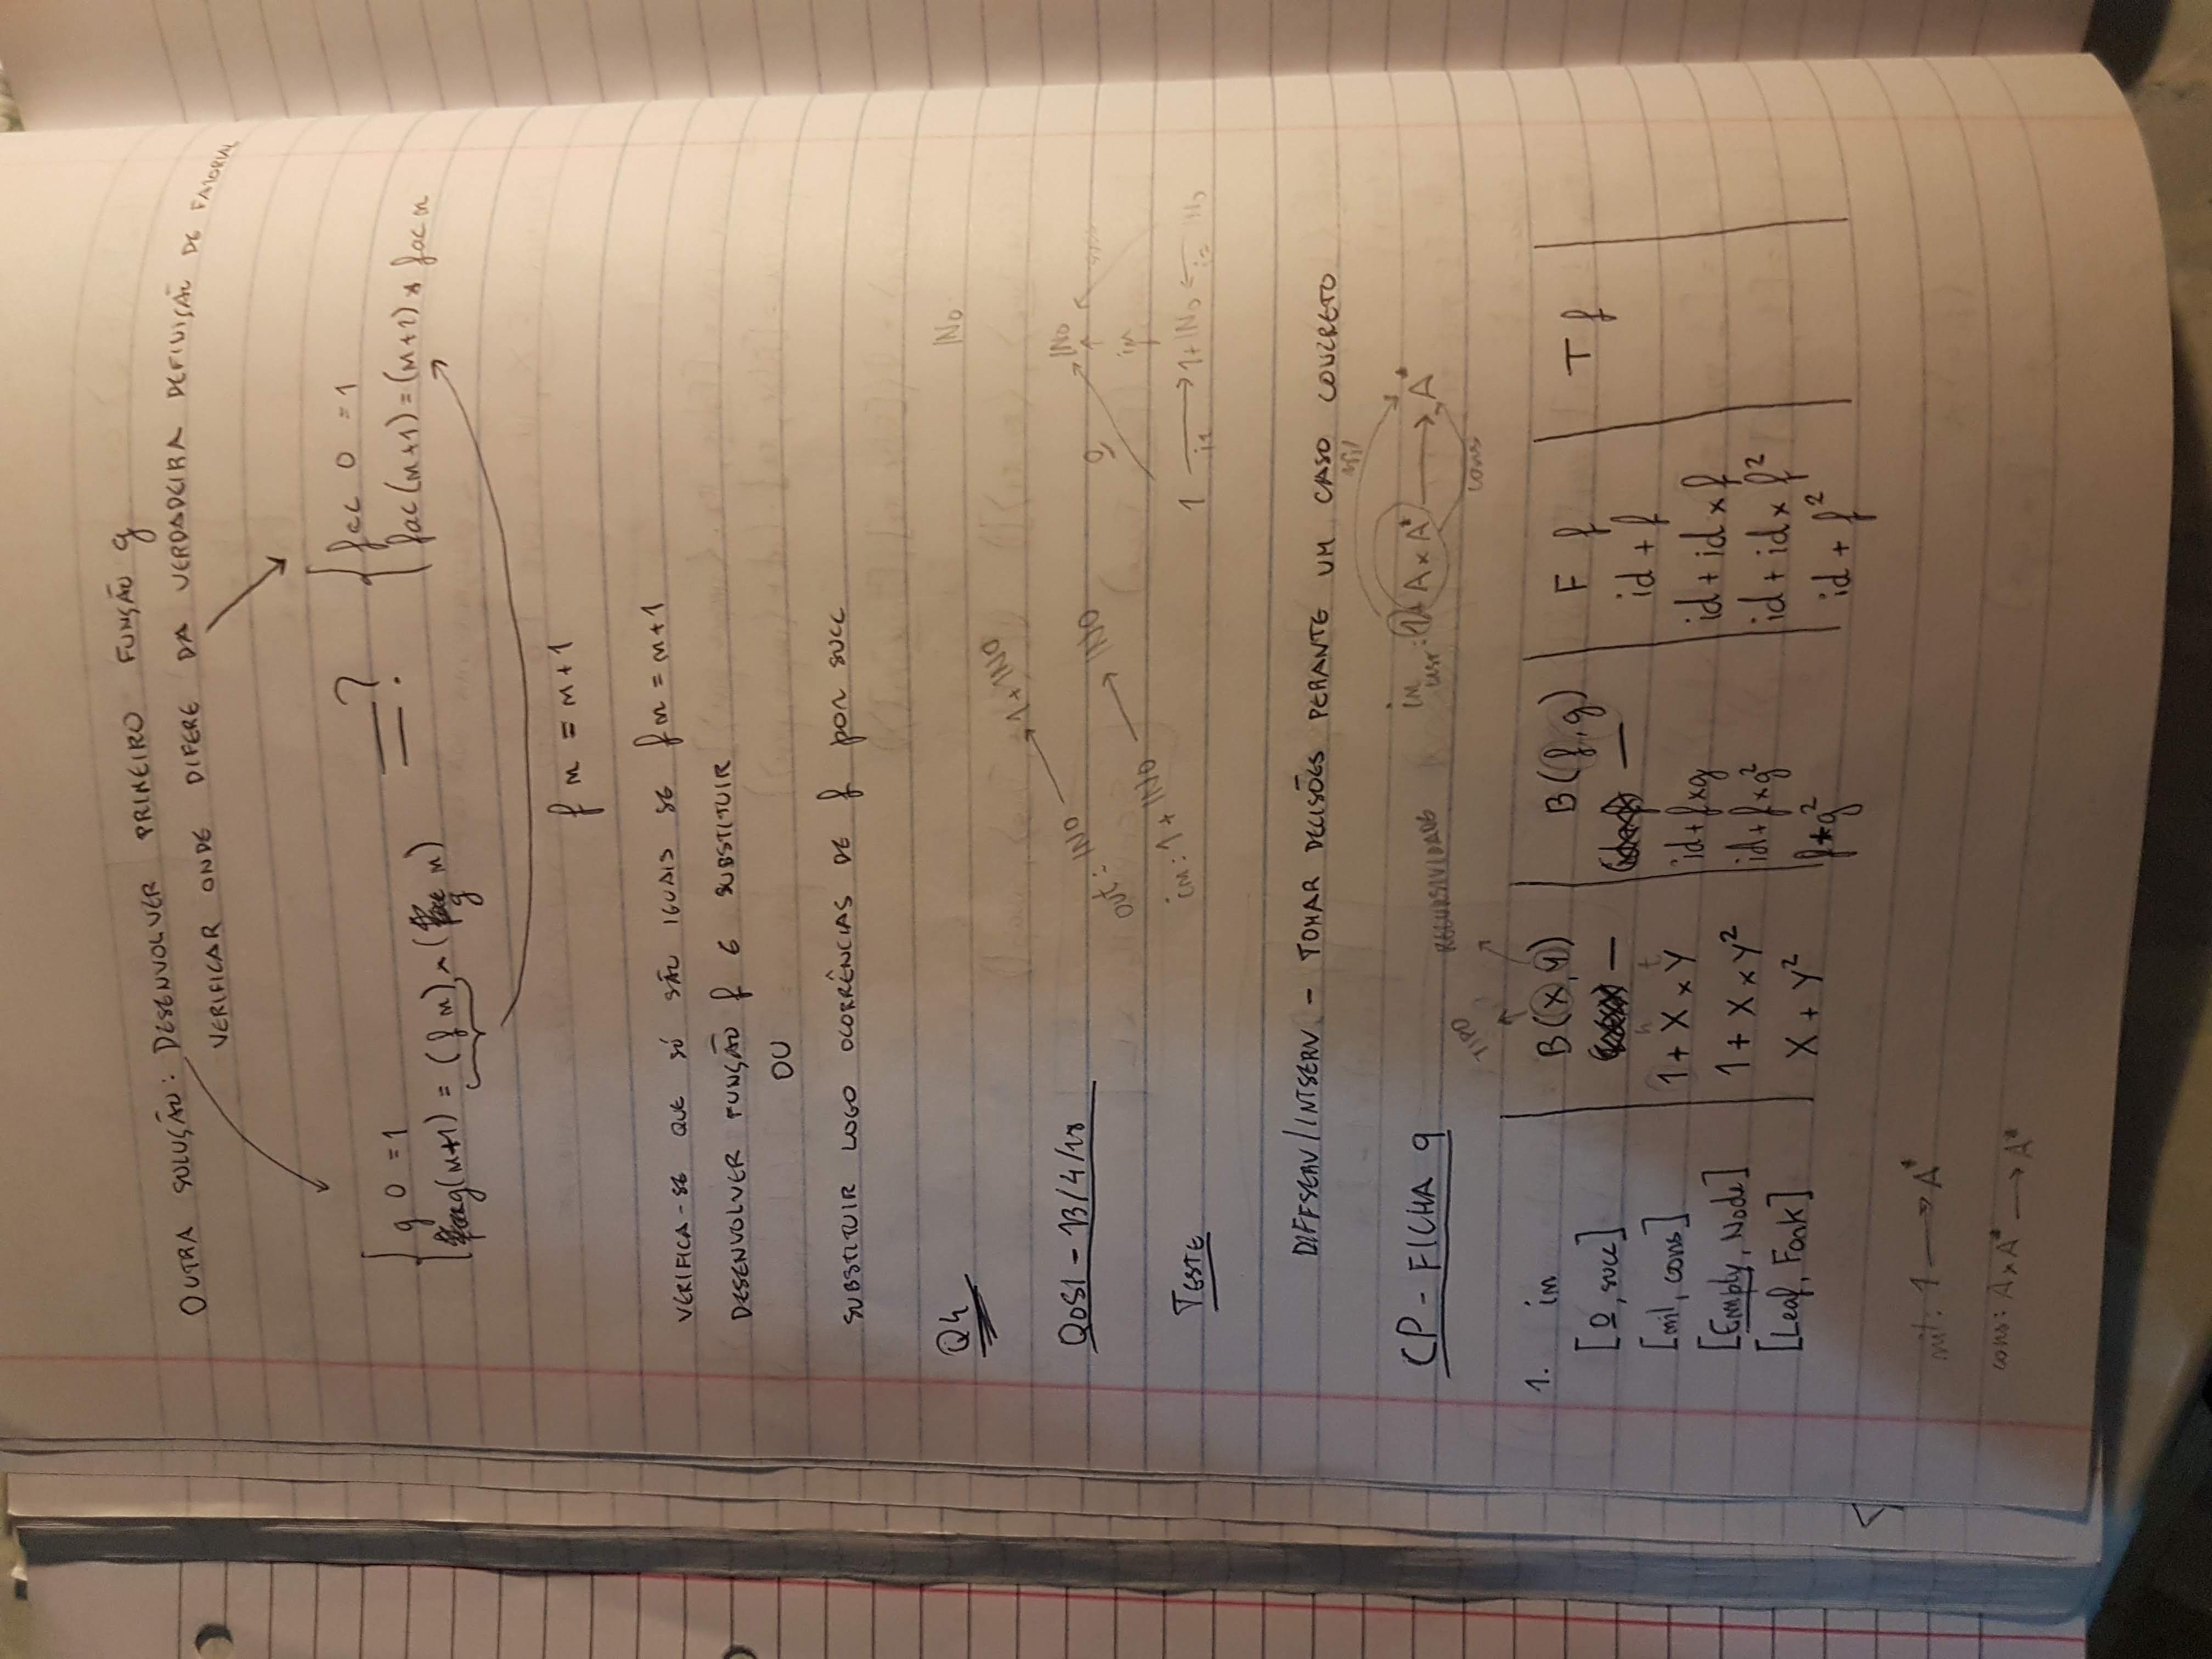 OUTRA SOLUÇÃO: DESENVOLVER PRIMEIRO FUNÇÃO g
VERIFICAR ONDE DIFERE DA VERDADEIRA DEFINIÇÃO DE FATORIAL
g 0 = 1
g(n+1) = (f n) * (g n)
=?
fac 0 = 1
fac(n+1) = (n+1) * fac n
f n = n+1
VERIFICA-SE QUE SÓ SÃO IGUAIS SE f n = n+1
DESENVOLVER FUNÇÃO f E SUBSTITUIR
OU
SUBSTITUIR LOGO OCORRÊNCIAS DE f por succ
Q4
IN0
out: IN0 → 1+IN0
QoSI - 13/4/18
in: 1+IN0 → IN0
IN0
0
in
1 → 1+IN0 ← IN0
i1 i2
TESTE
DIFFSERV/INTSERV - TOMAR DECISÕES PERANTE UM CASO CONCRETO
nil
in : 1+A×A* → A*
cons
CP - FICHA 9
TIPO RECURSIVIDADE
1. in B(X,Y) B(f,g) F f T f
[0, succ] — — id + f
h t
[nil, cons] 1 + X × Y id + f×g id + id × f
[Empty, Node] 1 + X × Y² id + f×g² id + id × f²
[Leaf, Fork] X + Y² f+g² id + f²
nil: 1 → A*
cons: A×A* → A*